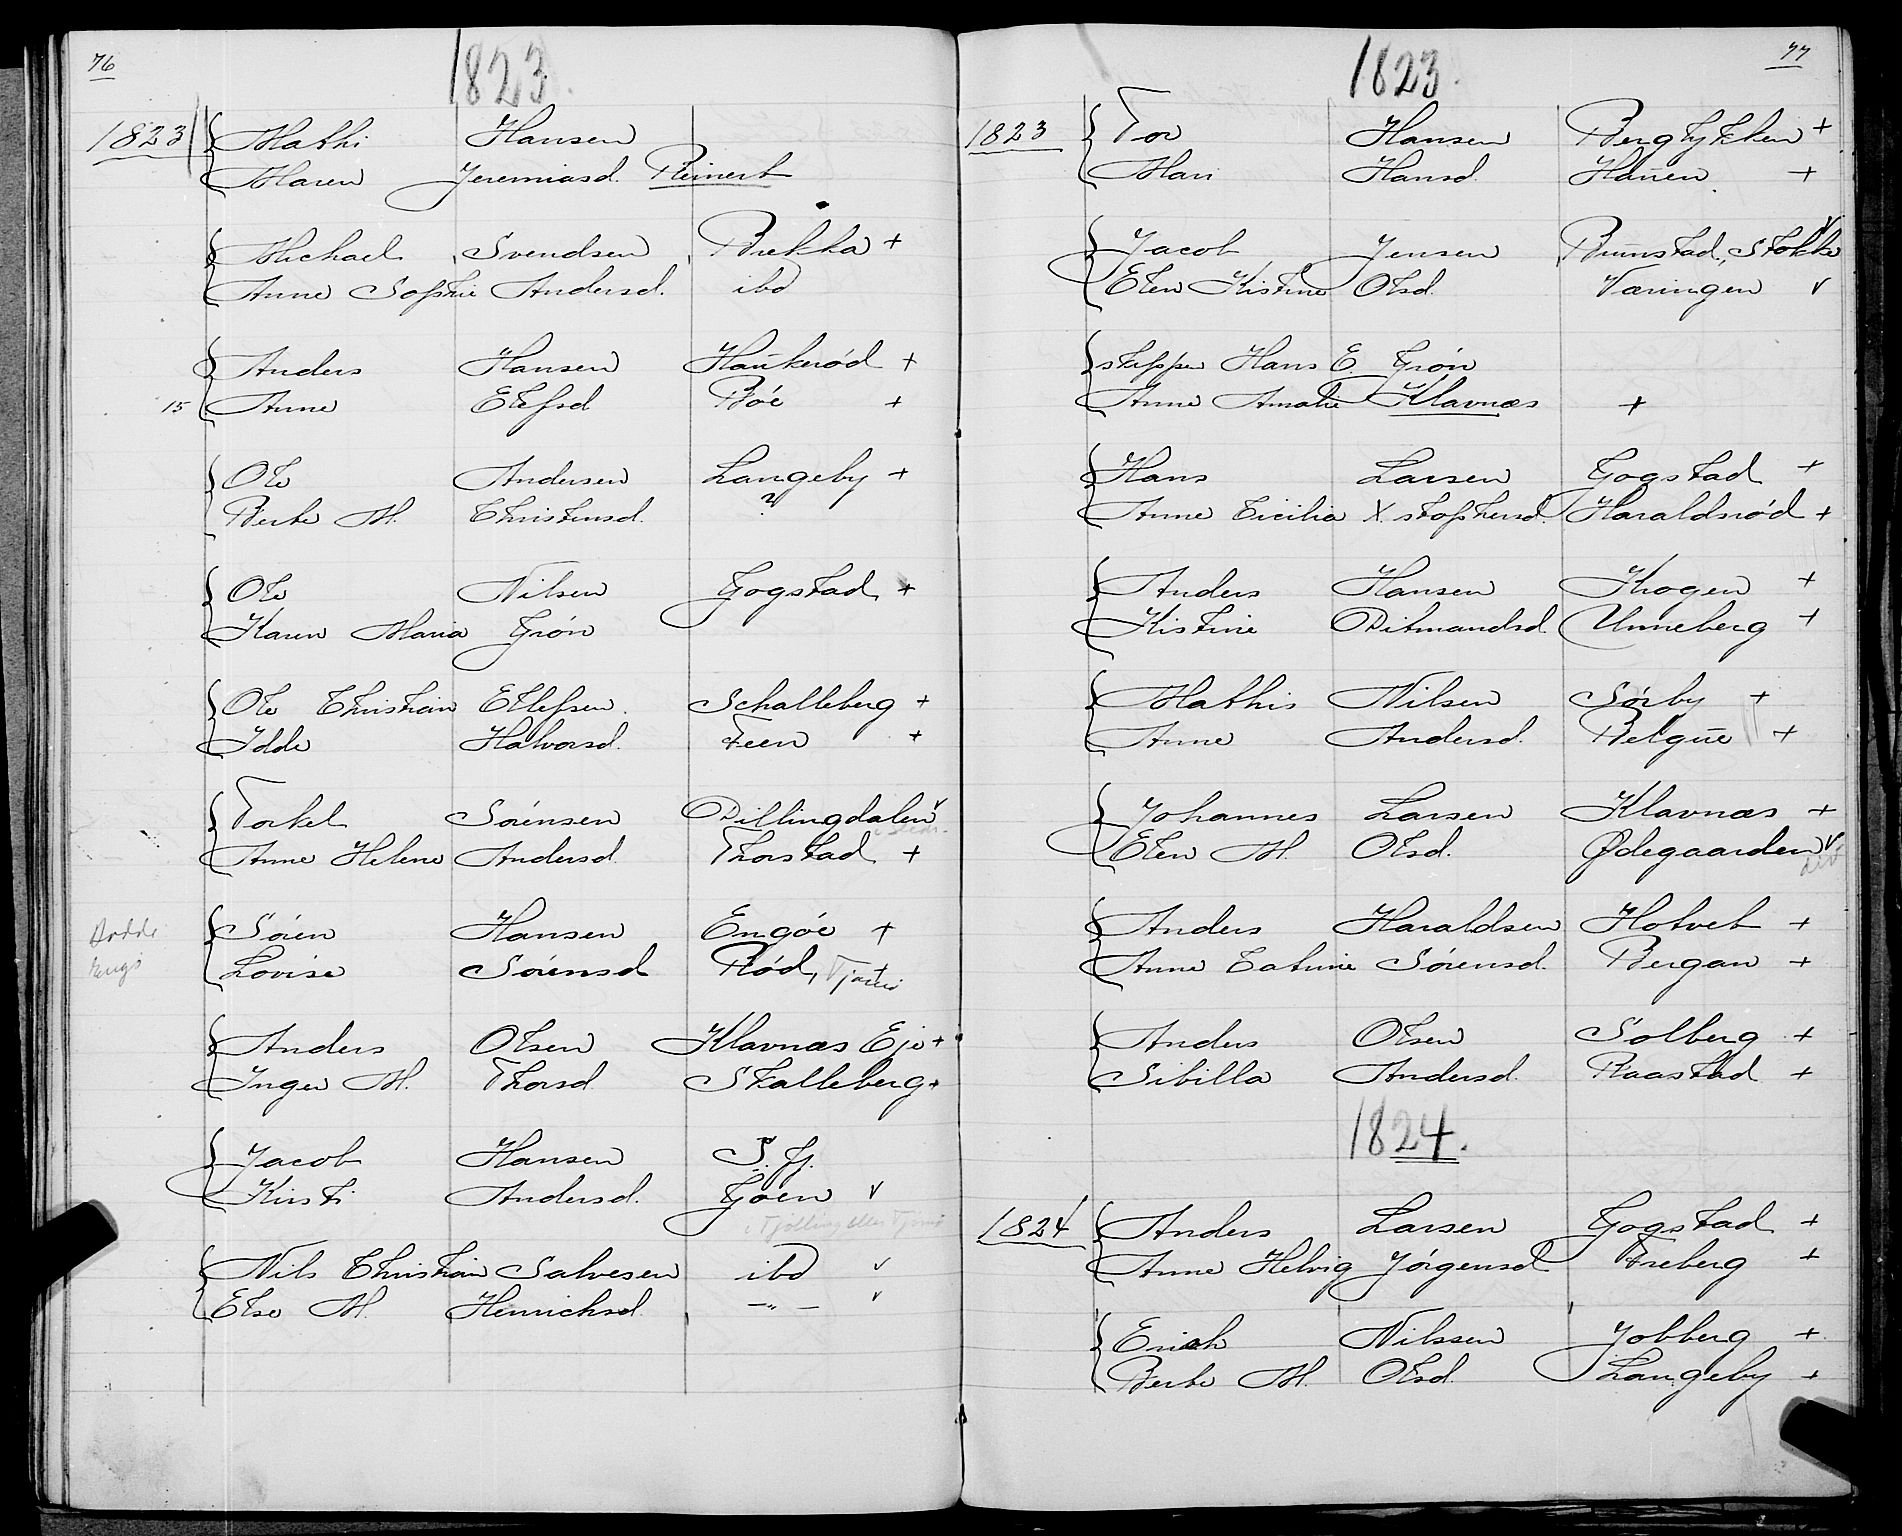 76
1823.
1823 Mathi Hansen
Maren Jeremiasd. Reinert
Michael Svendsen Brekka +
Anne Sophie Andersd. ibd
Anders Hansen Haukerød +
15 Anne Elefsd Bøe +
Ole Andersen Langeby +
Berte M. Christensd. ?
Ole Nilsen Gogstad +
Karen Maria Grøn
Ole Christian Ellefsen. Schalleberg +
Idde Halvorsd. Feen +
Torkel Sørensen Dillingdalen v
Anne Helene Andersd. Thorstad +
Søren Hansen Engøe +
Lovise Sørensd Rød, Tjømø
Anders Olsen Klavnæs Eje +
Inger M. Thorsd Skalleberg +
Jacob Hansen S. fj.
Kirsti Andersd. Goen v
i Tjølling eller Tjømø
Nils Christian Salvesen ibd v
Else M. Henrichsd. —"— v
77
1823.
1823 Tor Hansen Berglykken +
Mari Hansd. Hauen. +
Jacob Jensen Brunstad, Stokke v
Elen Kistine Olsd. Væringen v
skipper Hans E. Grøn
Anne Amalie Klavnæs +
Hans Larsen Gogstad +
Anne Cicilia X.stophersd. Haraldsrød +
Anders Hansen Krogen +
Kistine Ditmandsd. Unneberg +
Mathis Nilsen Sørby +
Anne Andersd. Belgue +
Johannes Larsen Klavnæs +
Elen M. Olsd. Ødegaarden v
Anders Haraldsen Hotvet +
Anne Catrine Sørensd. Bergan +
Anders Olsen Solberg +
Sibilla Andersd. Raastad +
1824.
1824 Anders Larsen Gogstad +
Anne Helvig Jørgensd. Freberg +
Erich Nilssen Jobberg +
Berte M. Olsd. Langeby +